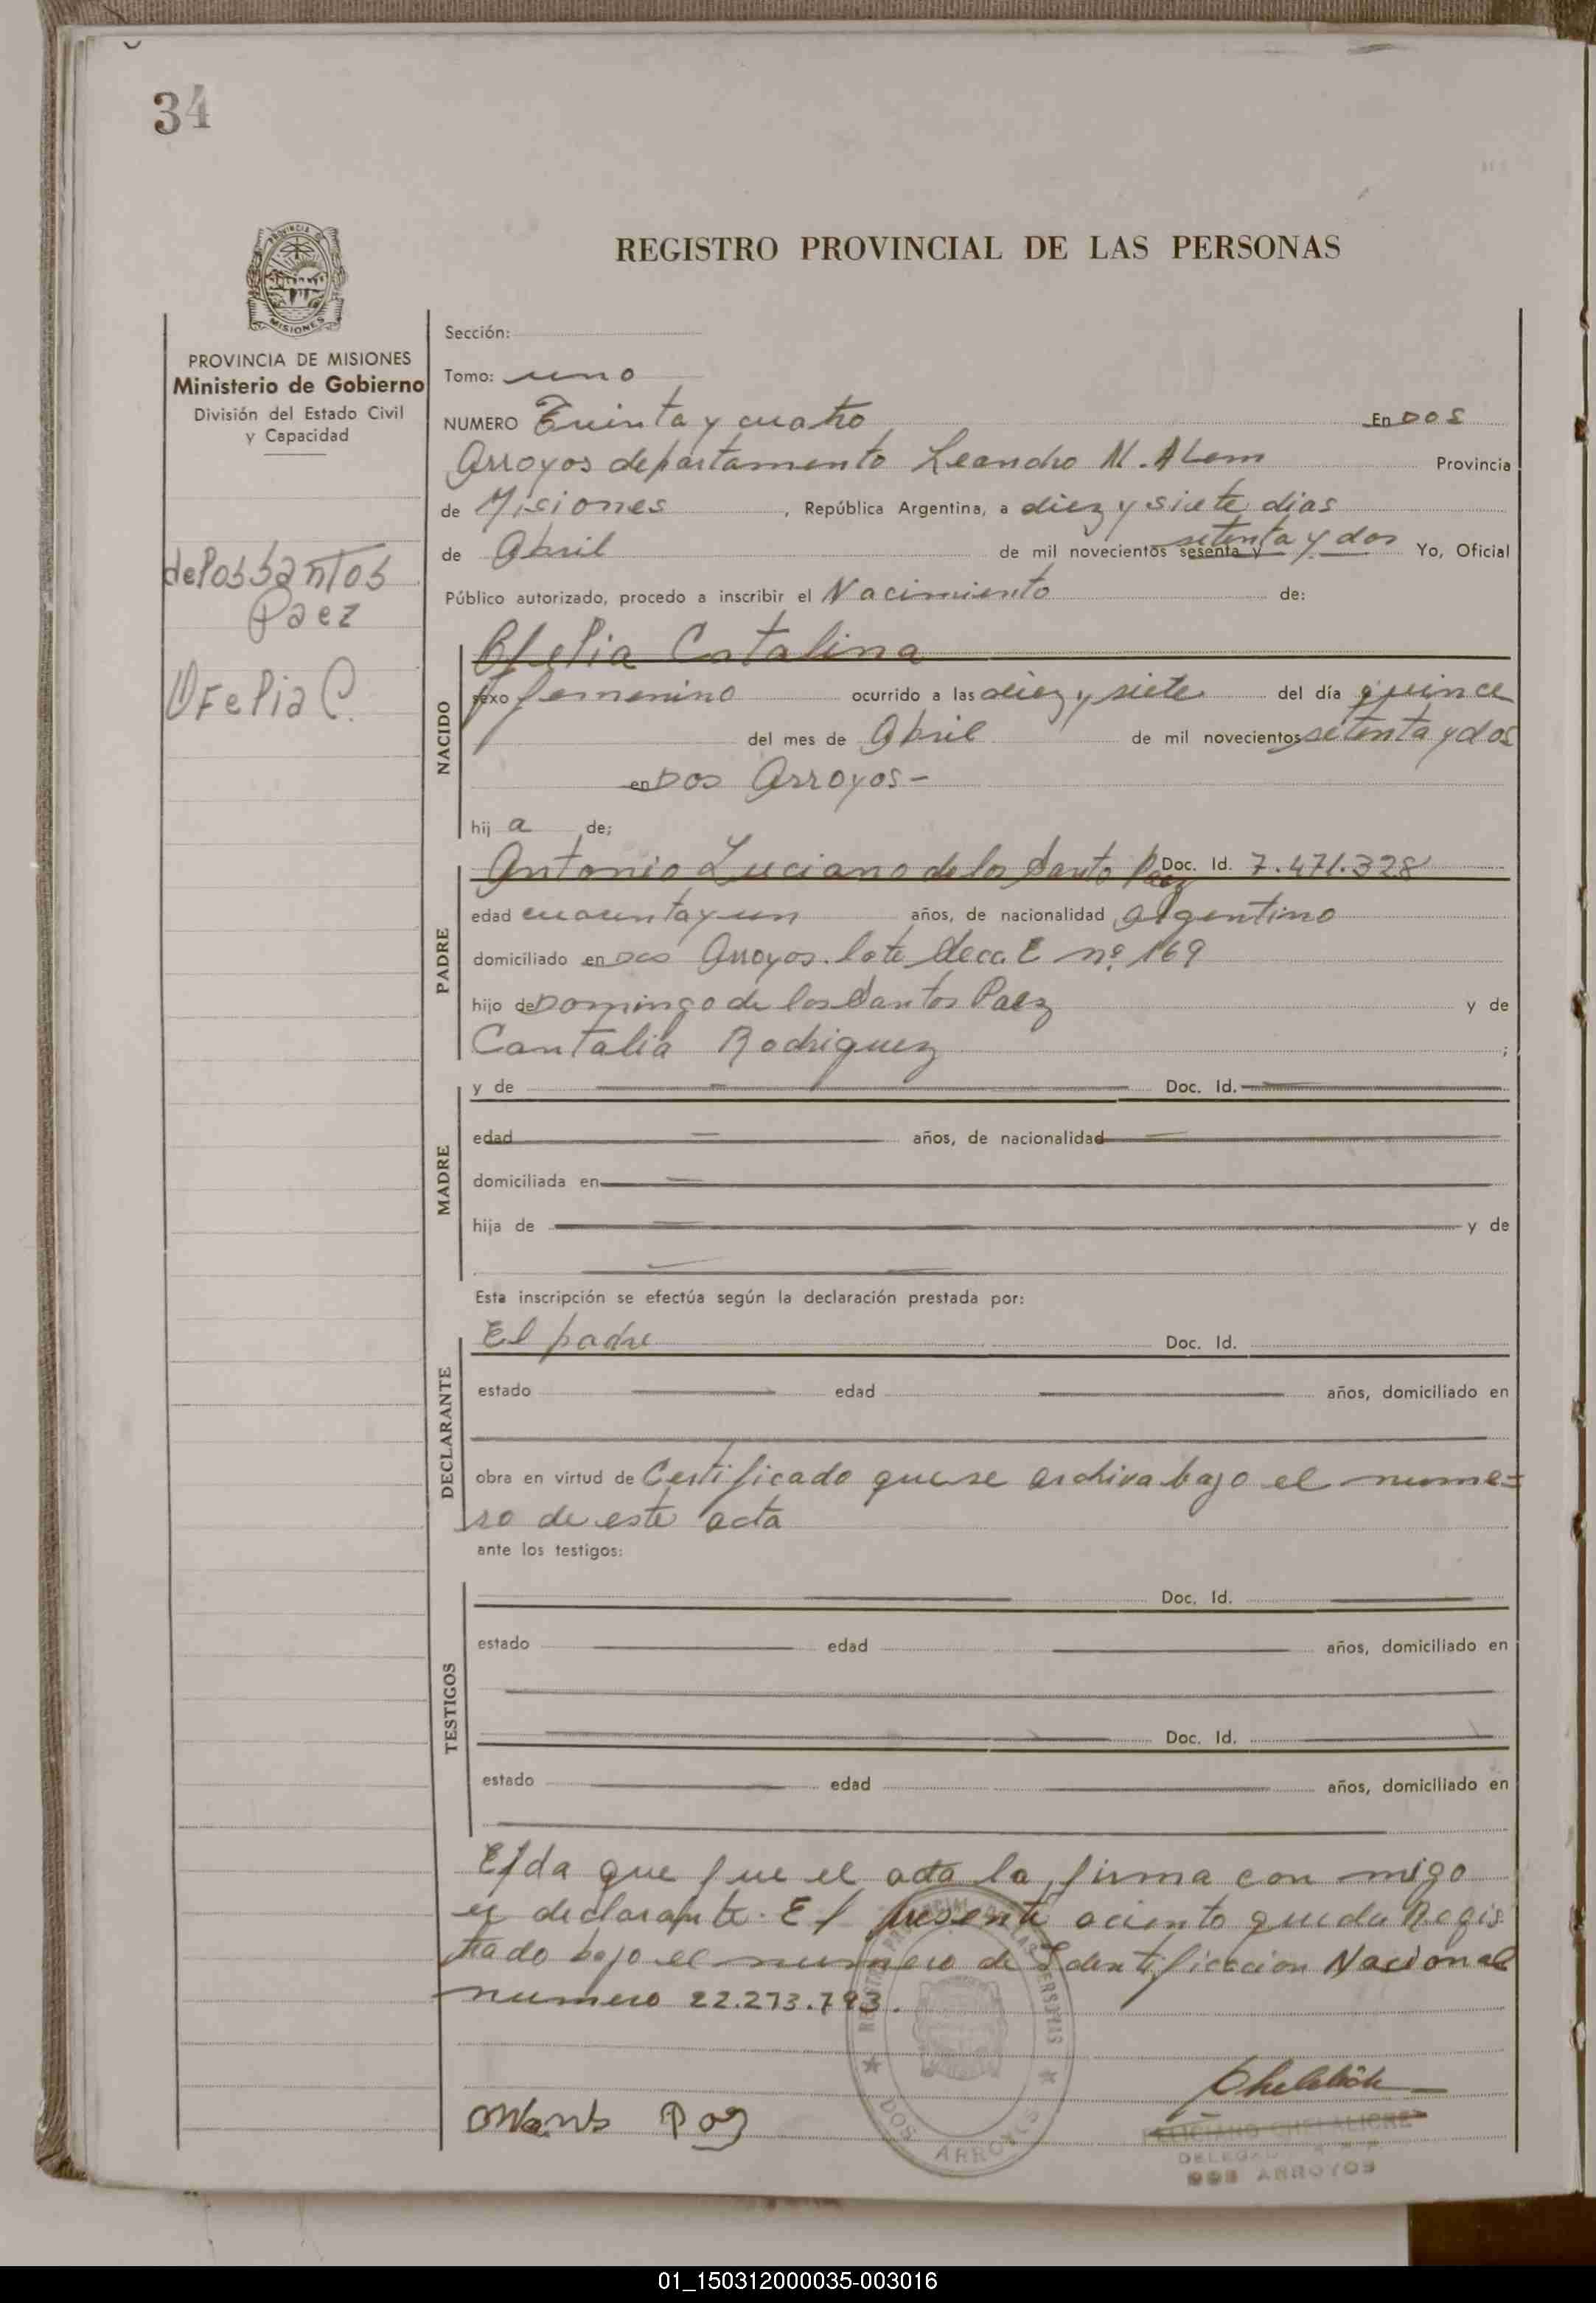 34
REGISTRO PROVINCIAL DE LAS PERSONAS
PROVINCIA DE
MISIONES
PROVINCIA DE MISIONES
Ministerio de Gobierno
División del Estado Civil
y Capacidad
de los santos
Paez
Ofelia C.
Sección:
Tomo: uno
NUMERO Treinta y cuatro En Dos
Arroyos departamento Leandro N. Alem Provincia
de Misiones, República Argentina, a diez y siete dias
de Abril de mil novecientos sesenta y setenta y dos Yo, Oficial
Público autorizado, procedo a inscribir el Nacimiento de:
NACIDO
Ofelia Catalina
sexo femenino ocurrido a las diez y siete del día quince
del mes de Abril de mil novecientos setenta y dos
en Dos Arroyos -
hij a de;
PADRE
Antonio Luciano de los Santo Paez Doc. Id. 7.471.328
edad cuarenta y un años, de nacionalidad argentino
domiciliado en Dos Arroyos. lote Secc. E nº 169
hijo de Domingo de los Santos Paez y de
Cantalia Rodriguez ;
MADRE
y de Doc. Id.
edad años, de nacionalidad
domiciliada en
hija de y de
Esta inscripción se efectúa según la declaración prestada por:
DECLARANTE
El padre Doc. Id.
estado edad años, domiciliado en
obra en virtud de Certificado que se archiva bajo el nume=
ro de este acta
ante los testigos:
TESTIGOS
Doc. Id.
estado edad años, domiciliado en
Doc. Id.
estado edad años, domiciliado en
que fue el acta la firma con migo
el declarante. El presente aciento queda Regis
trado bajo el numero de Identificacion Nacional
numero 22.273.793.
REGISTRO PROVINCIAL DE LAS PERSONAS
DOS ARROYOS
FELICIANO CHELALICHE
DOS ARROYOS
01_150312000035-003016